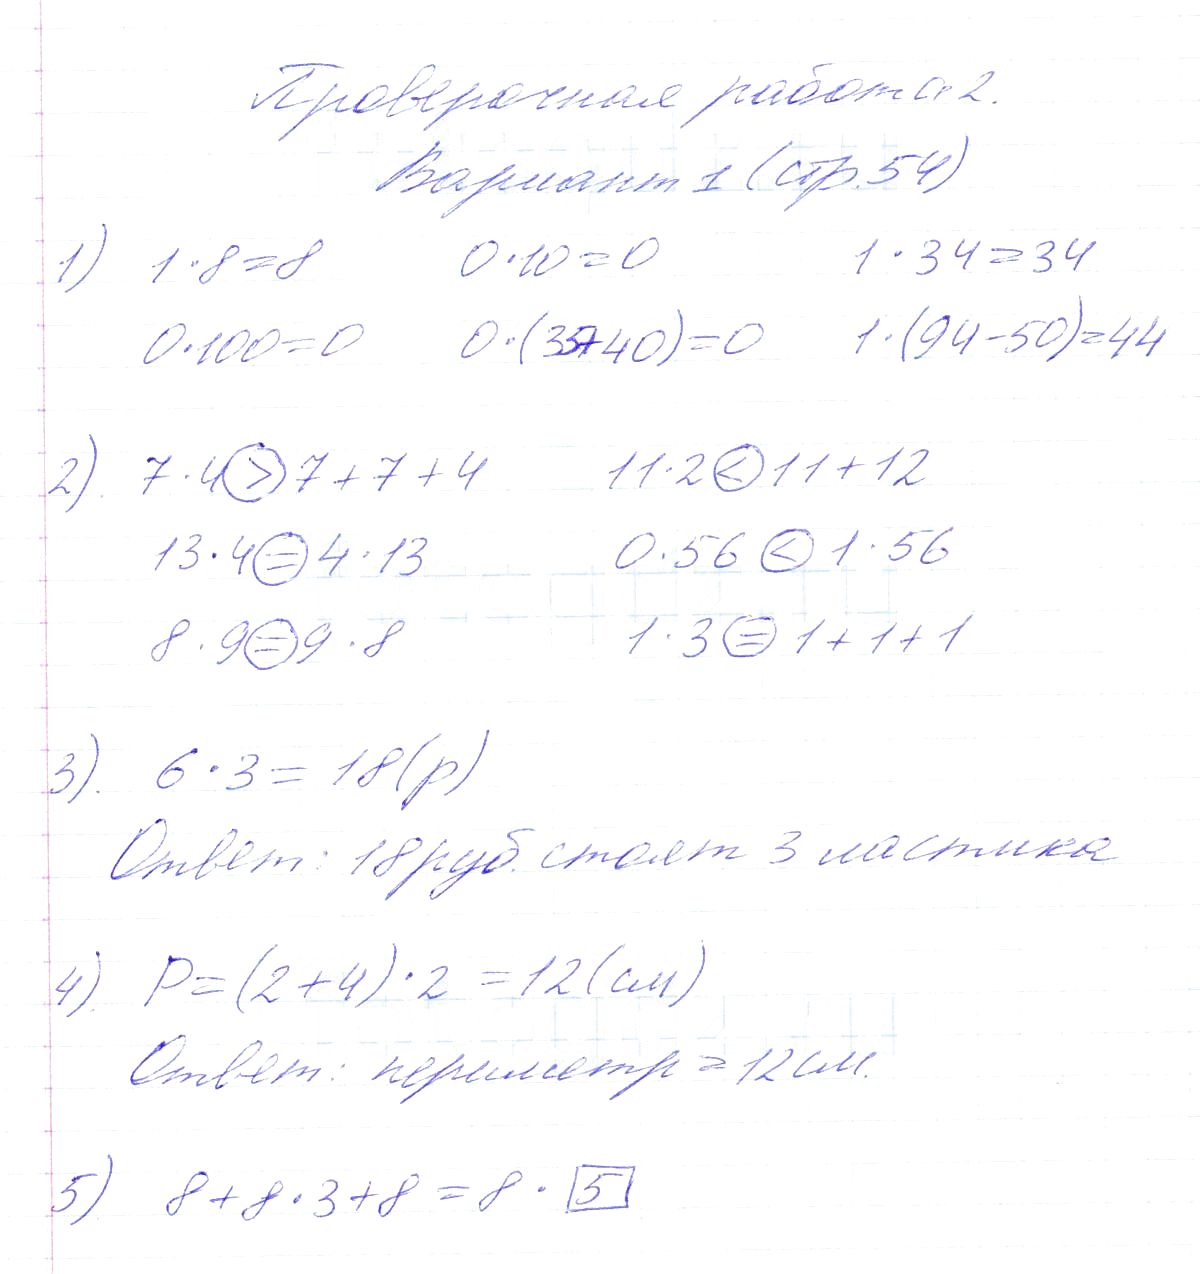 Проверочная работа 2.
Вариант 1 (стр. 54)
1) 1·8=8 0·10=0 1·34=34
0·100=0 0·(37+40)=0 1·(94-50)=44
2). 7·4>7+7+4 11·2<11+12
13·4=4·13 0·56<1·56
8·9=9·8 1·3=1+1+1
3). 6·3=18(р)
Ответ: 18 руб. стоят 3 ластика
4). P=(2+4)·2=12(см)
Ответ: периметр = 12 см.
5) 8+8·3+8=8·5